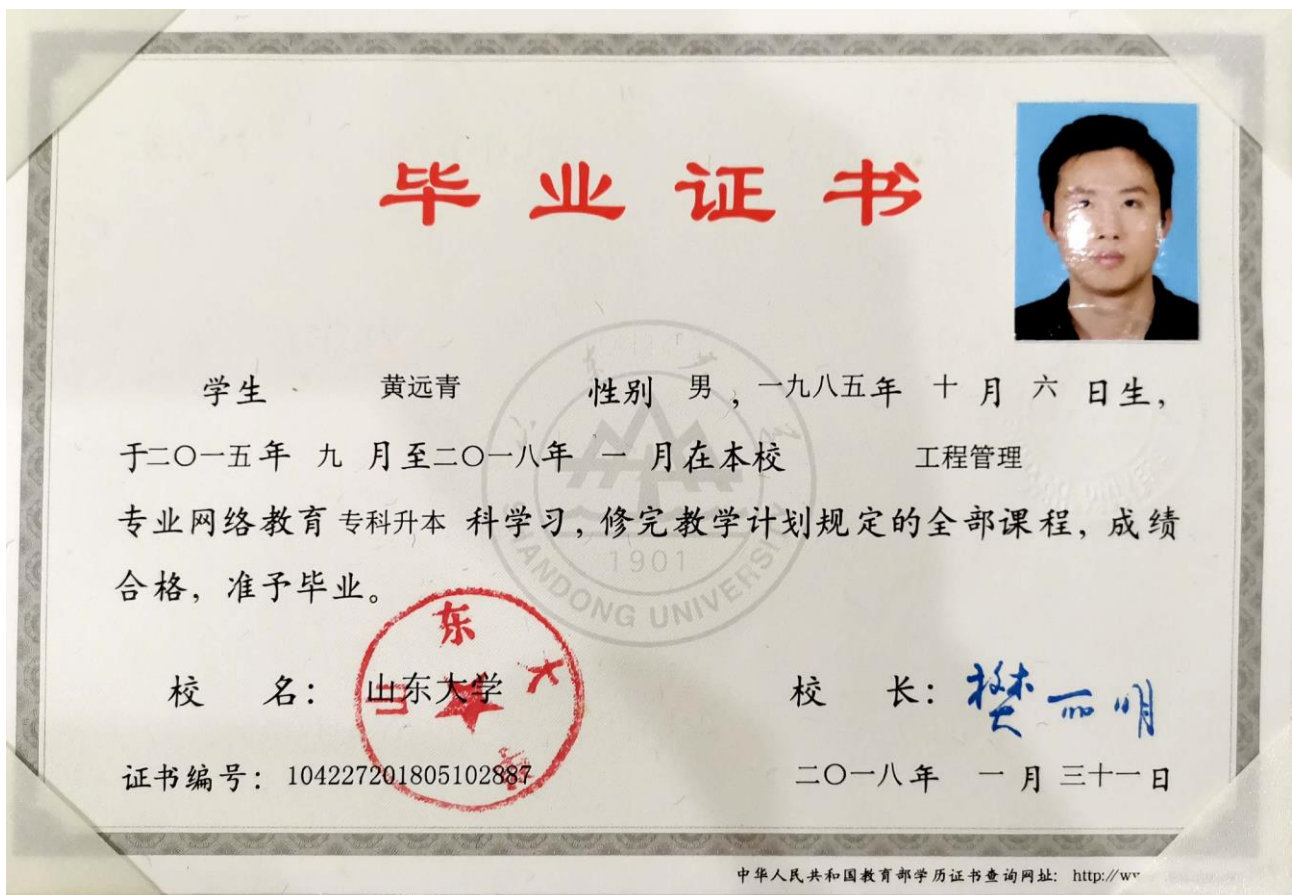 毕业证书
学生 黄远青 性别 男，一九八五年 十 月 六 日生，
于二〇一五年 九 月至二〇一八年 一 月在本校 工程管理
专业网络教育 专科升本 科学习，修完教学计划规定的全部课程，成绩
合格，准予毕业。
1901
SHANDONG UNIVERSITY
校 名：山东大学
校 长：樊丽明
山东大学
证书编号：104227201805102887
二〇一八年 一 月 三十一 日
中华人民共和国教育部学历证书查询网址：http://w